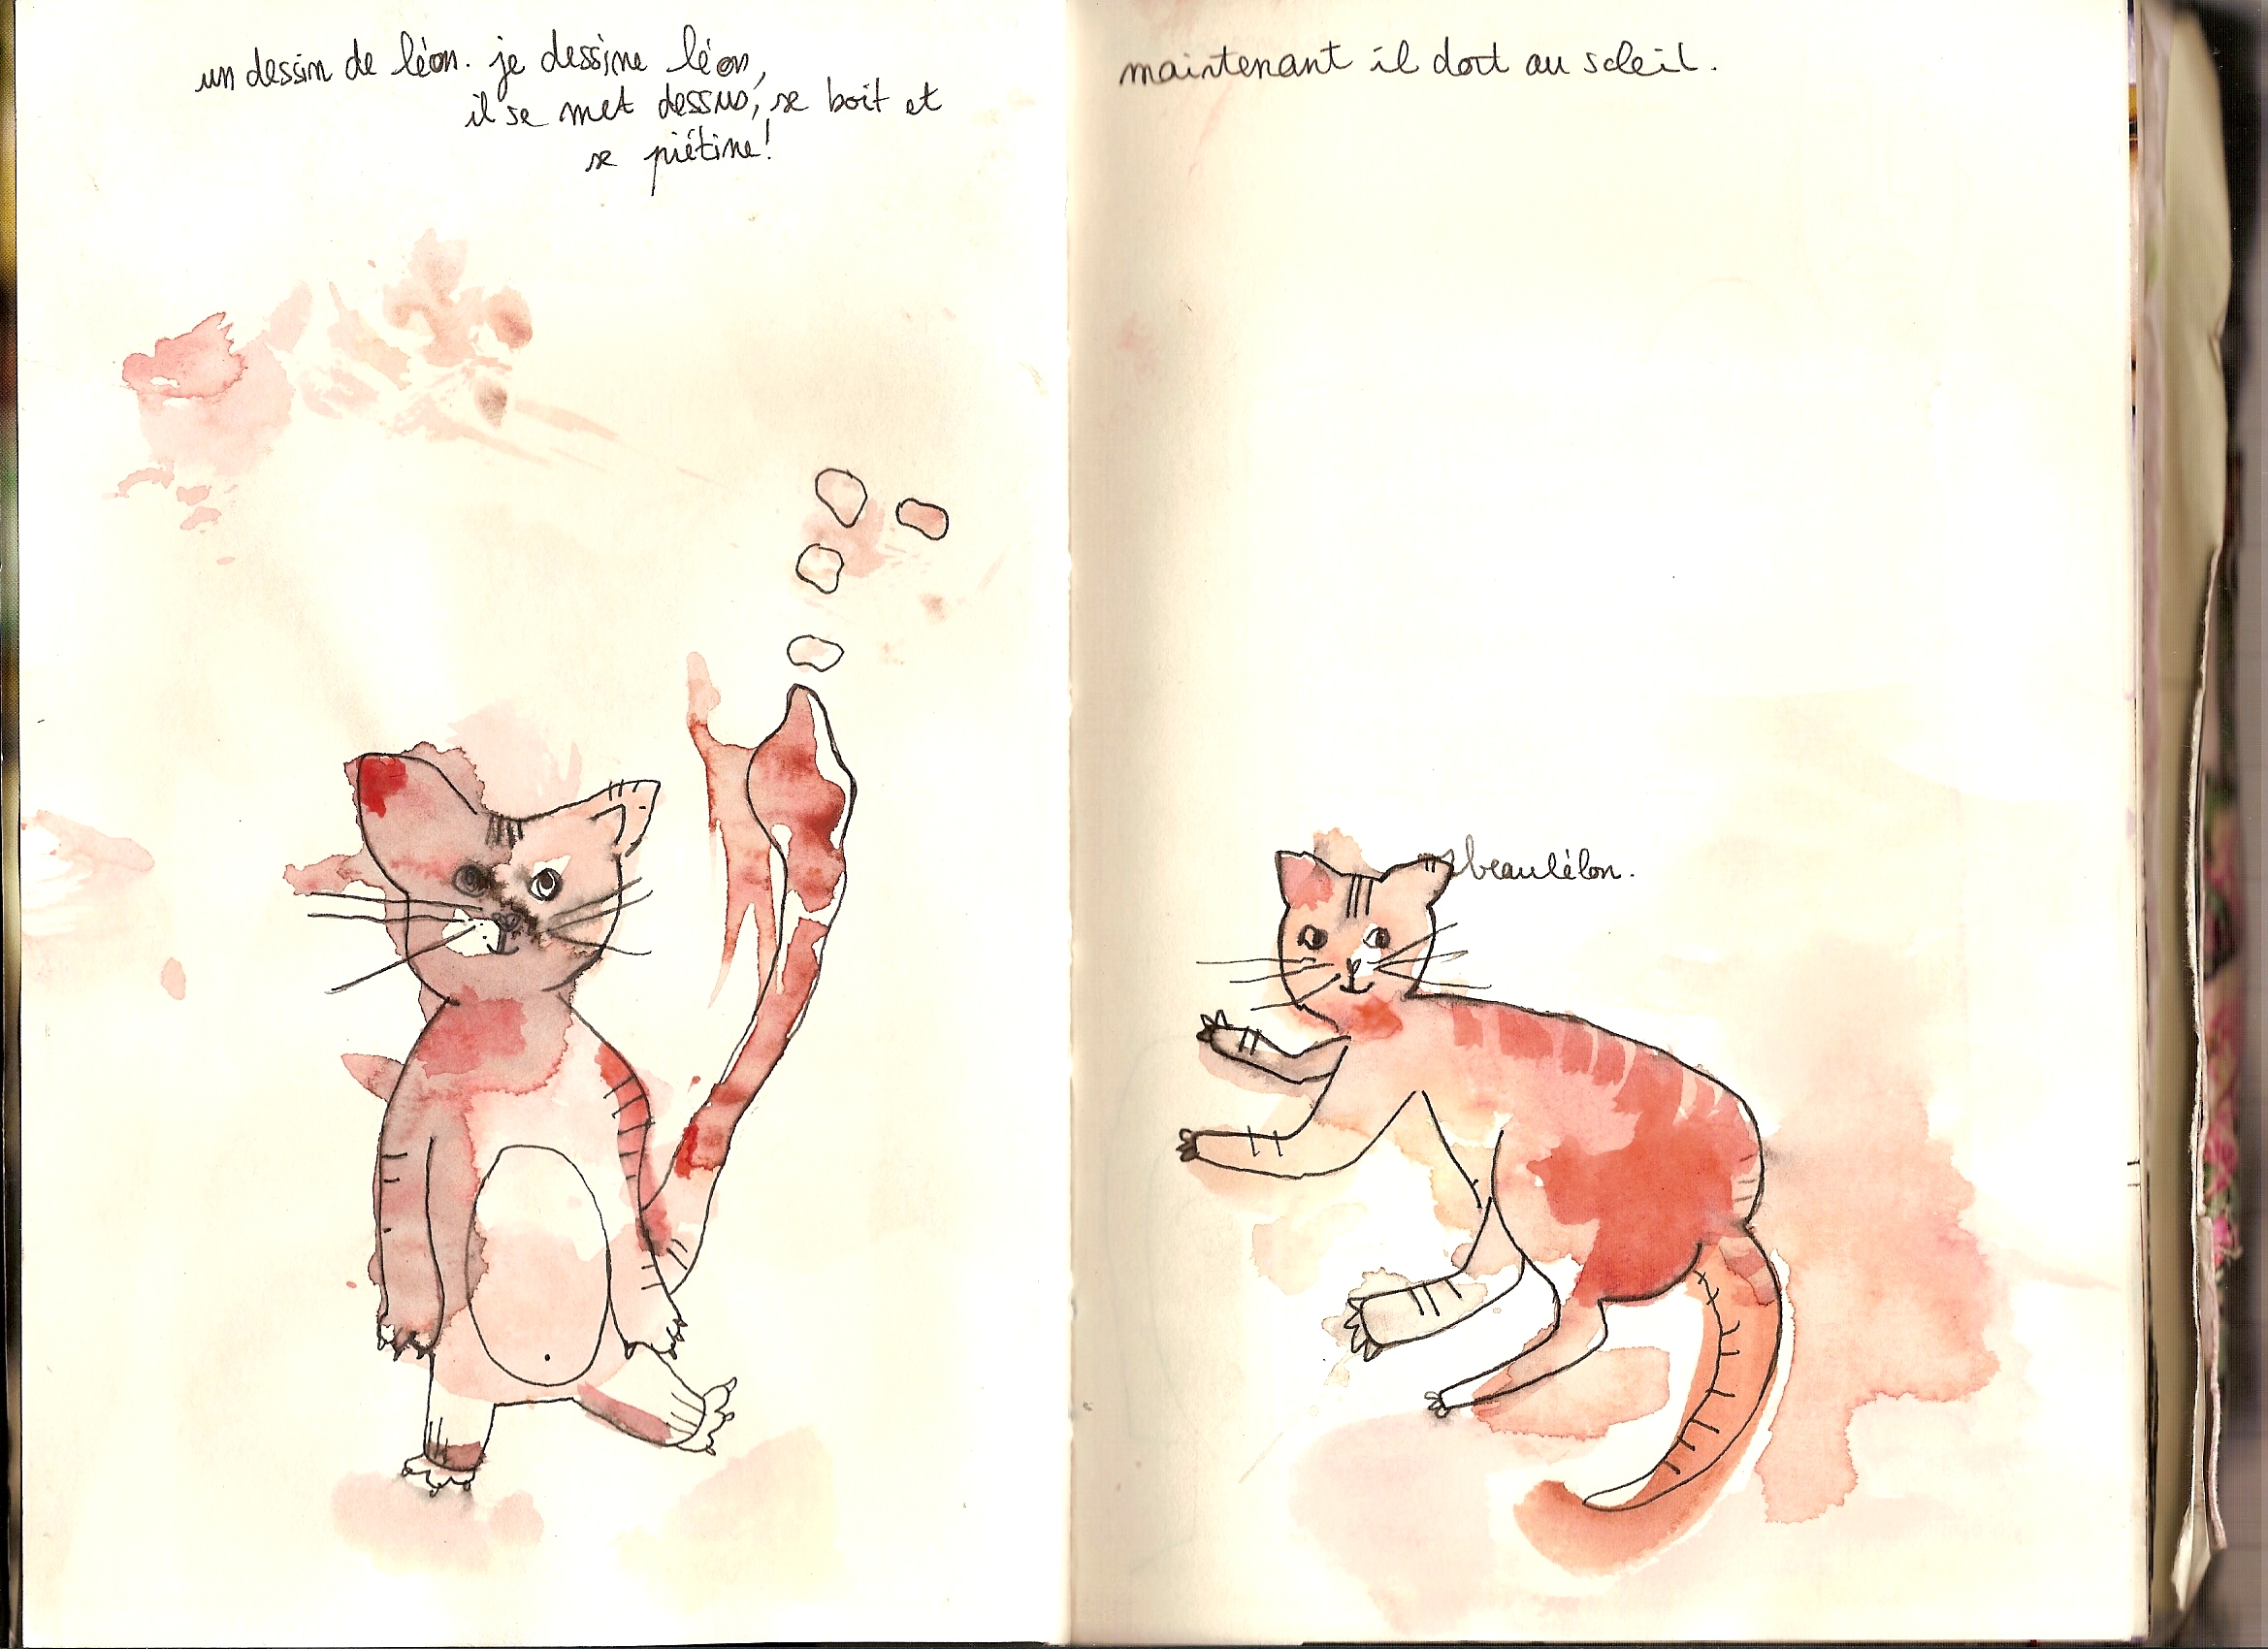 un dessin de léon. je dessine léon,
il se met dessus, se boit et
se piétine!
maintenant il dort au soleil.
beau léon.